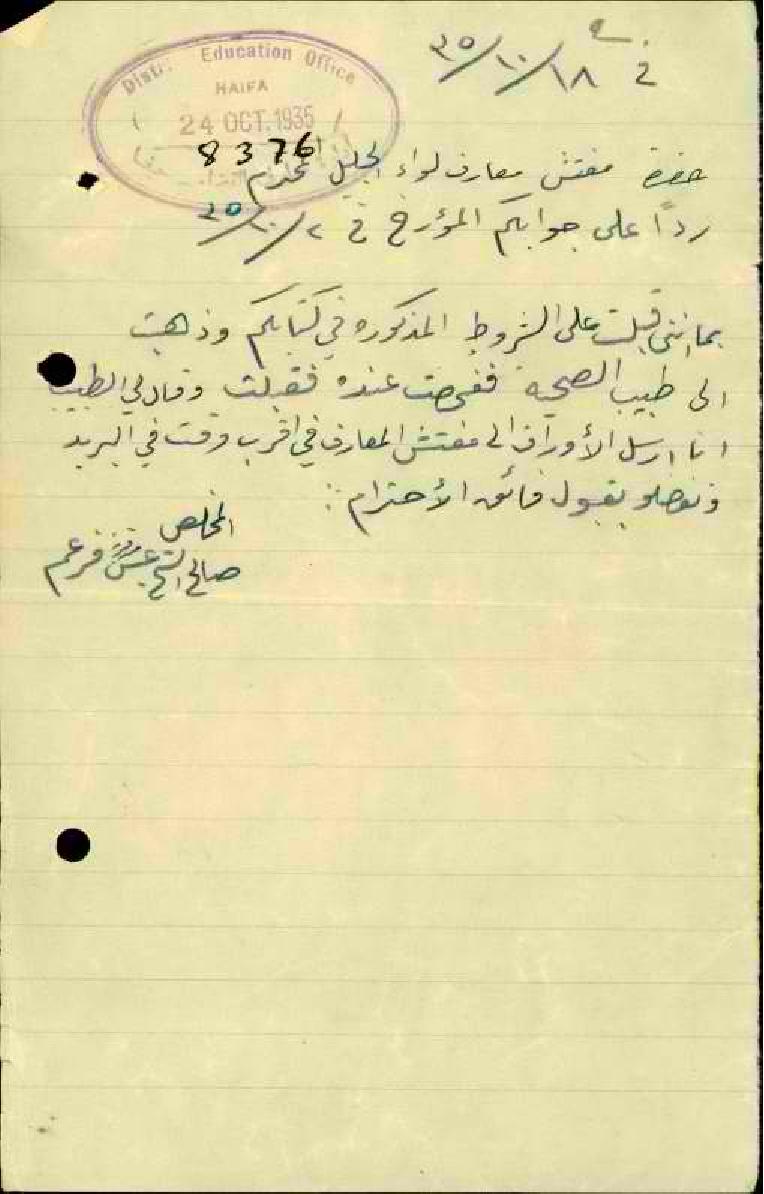 في ١٨/١٠/٣٥
Distr. Education Office
HAIFA
24 OCT. 1935
8376
حضرة مفتش معارف لواء الجليل المحترم
رداً على جوابكم المؤرخ في ٢/١٠/٣٥
بما انني قبلت على الشروط المذكوره في كتابكم وذهبت
الى طبيب الصحية ففحصت عنده فقبلت وقال لي الطبيب
انا ارسل الأوراق الى مفتش المعارف في اقرب وقت في البريد
وتفضلو بقبول فائق الأحترام
المخلص
صالح الشيخ